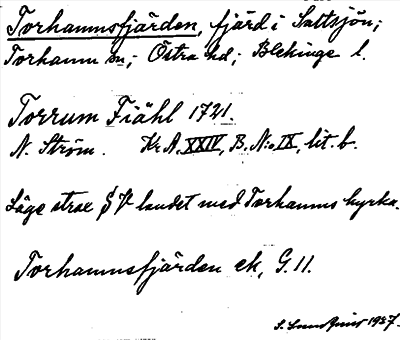 Torhamnsfjärden, fjärd i Saltsjön;
Torhamn sn; Östra hd; Blekinge l.
Torrum Fiähl 1721.
N. Ström. Kr. A. XXIV, B. N:o IX, lit. b.
Läge strax S V landet med Torhamns kyrka.
Torhamnsfjärden ek, G. 11.
S. 1927.